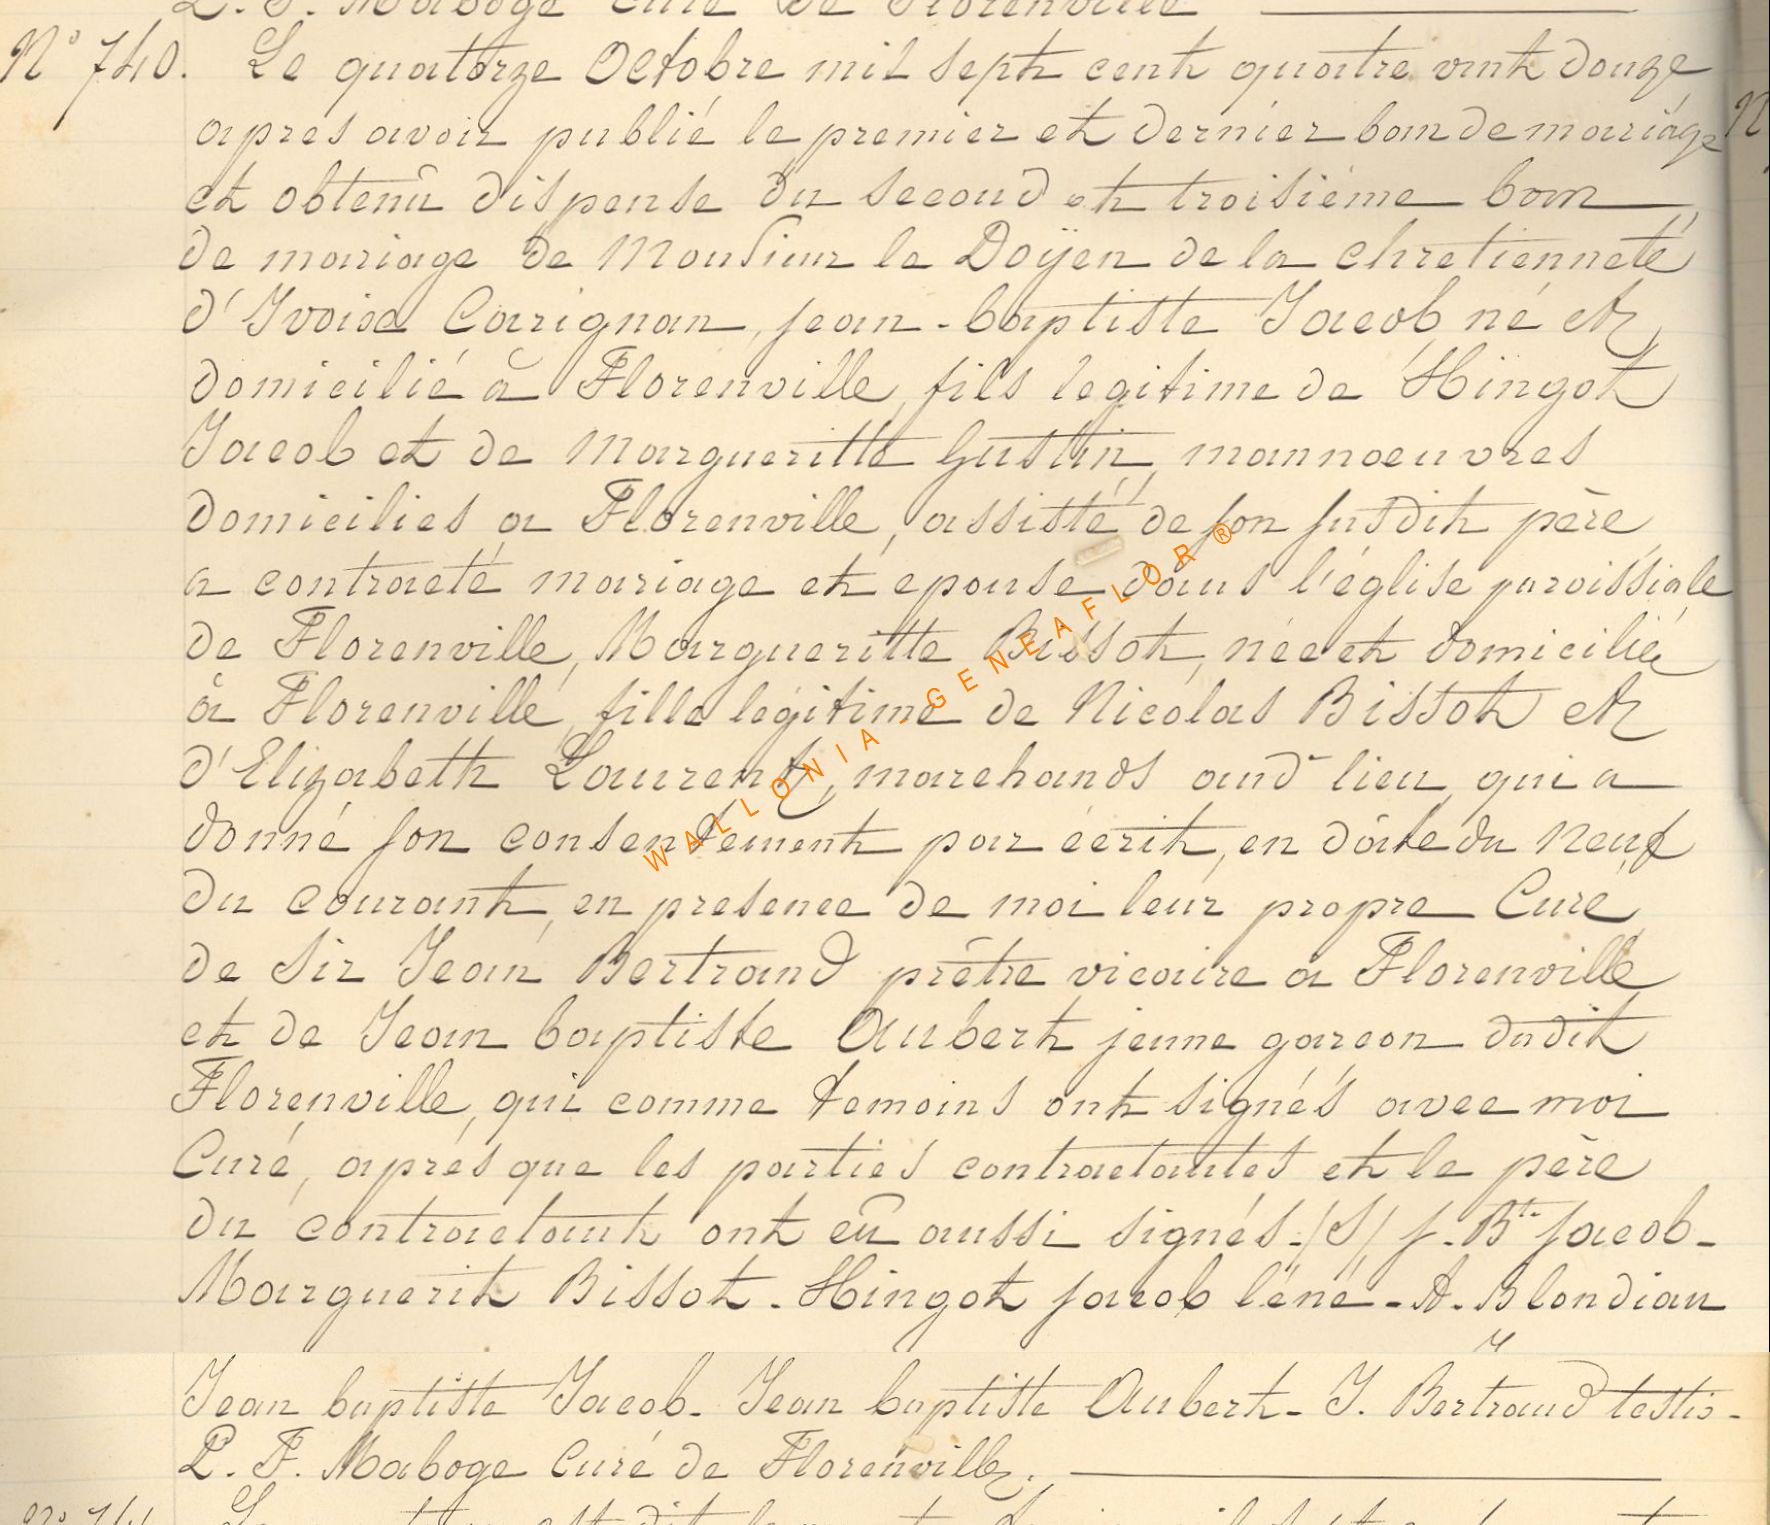 L. F. Maboge Curé de Florenville
N° 740. Le quatorze Octobre mil sept cent quatre vint douze
apres avoir publié le premier et dernier ban de mariage
et obtenû dispense du second et troisiéme ban
de mariage de Monsieur le Doÿen de la chretienneté
d'Ivoix Carignan, jean-baptiste Jacob, né et
domicilié à Florenville, fils legitime de Hingot
Jacob et de Margueritte Gustin, mannoeuvres
domicilies a Florenville, assisté de son susdit père
a contracté mariage et epouse dans l'église paroissiale
de Florenville, Margueritte Bissot, née et domiciliée
à Florenville, fille légitime de Nicolas Bissot et
d'Elizabeth Laurent, marchands aud lieu, qui a
donné son consentement par écrit, en date du neuf
du courant, en presence de moi leur propre Curé
de Sir Jean Bertrand prêtre vicaire a Florenville
et de Jean baptiste Aubert jeune garcon dudit
Florenville, qui comme temoins ont signés avec moi
Curé, aprés que les parties contractantes et le père
du contractant ont eû aussi signés./S/ j. Bte jacob-
Marguerit Bissot. Hingot jacob l'éné - A. Blondiau
Jean baptiste Jacob. Jean baptiste Aubert- J. Bertrand testis-
L. F. Maboge Curé de Florenville.
WALLONIA-GENEAFLOR®